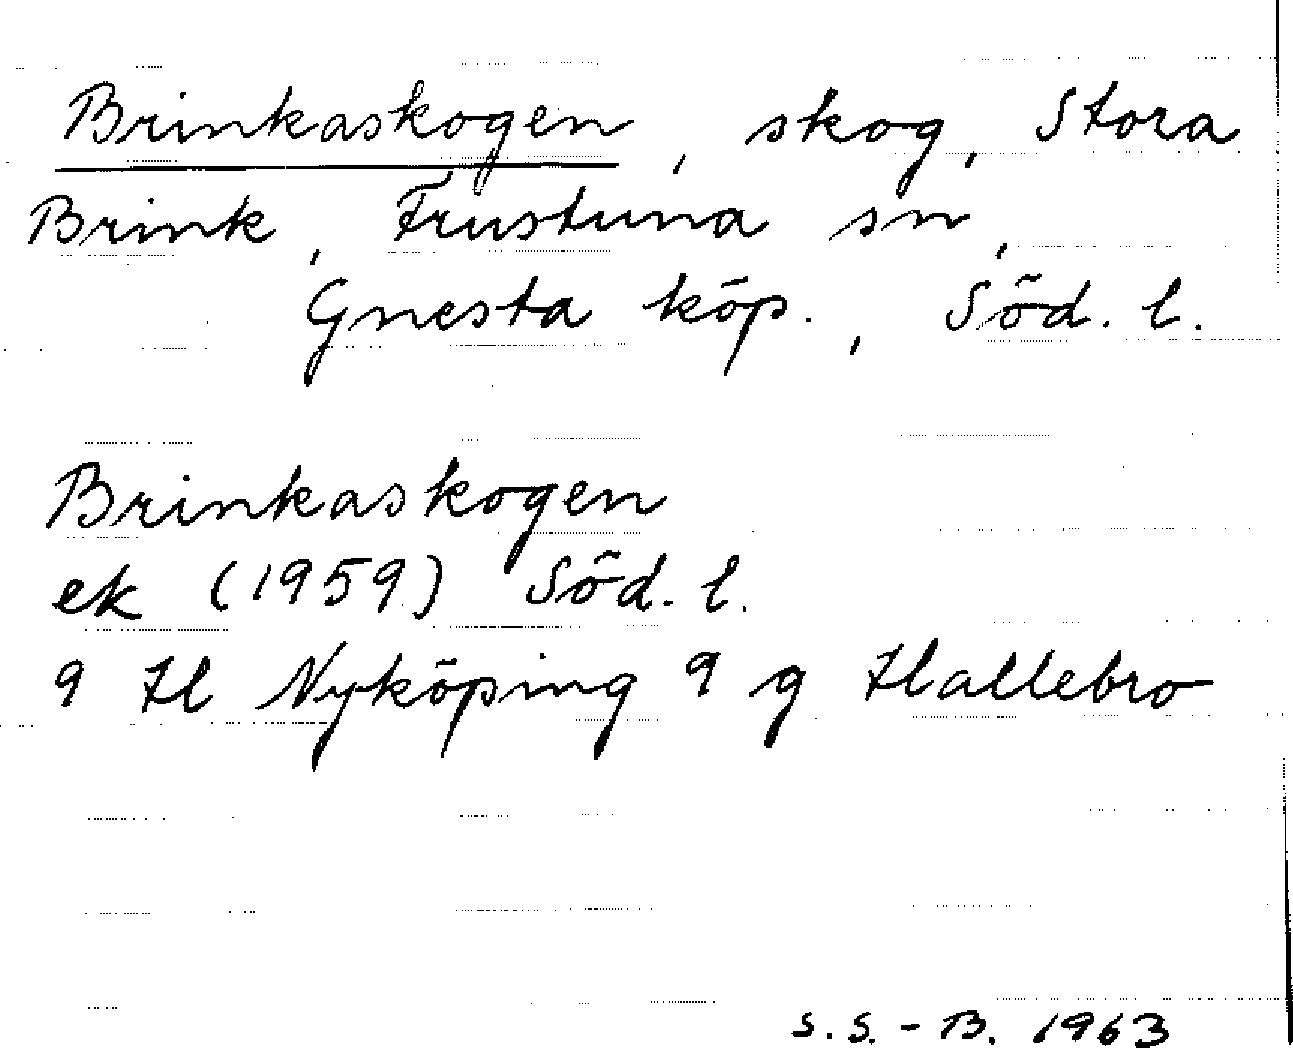 Brinkaskogen, skog, Stora
Brink, Frustuna sn,
Gnesta köp., Söd. l.
Brinkaskogen
ek (1959) Söd. l.
9 H Nyköping 9 g Hallebro
S.S.-B. 1963